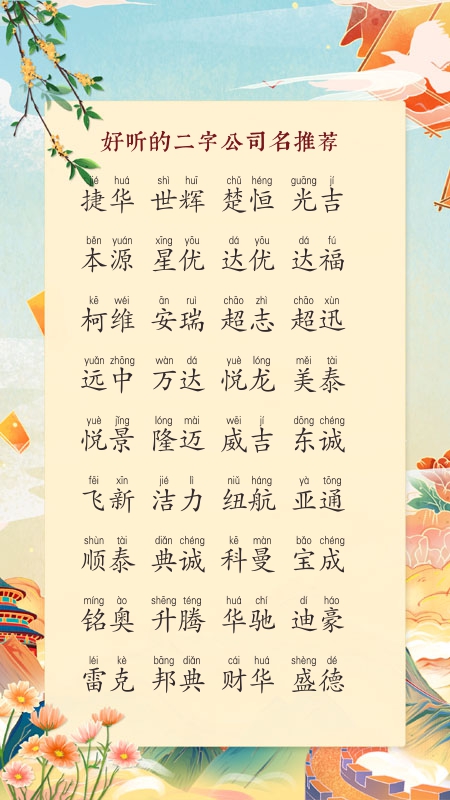 好听的二字公司名推荐
jié huá shì huī chǔ héng guāng jí
捷华 世辉 楚恒 光吉
běn yuán xīng yōu dá yōu dá fú
本源 星优 达优 达福
kē wéi ān ruì chāo zhì chāo xùn
柯维 安瑞 超志 超迅
yuǎn zhōng wàn dá yuè lóng měi tài
远中 万达 悦龙 美泰
yuè jǐng lóng mài wēi jí dōng chéng
悦景 隆迈 威吉 东诚
fēi xīn jié lì niǔ háng yà tōng
飞新 洁力 纽航 亚通
shùn tài diǎn chéng kē màn bǎo chéng
顺泰 典诚 科曼 宝成
míng ào shēng téng huá chí dí háo
铭奥 升腾 华驰 迪豪
léi kè bāng diǎn cái huá shèng dé
雷克 邦典 财华 盛德